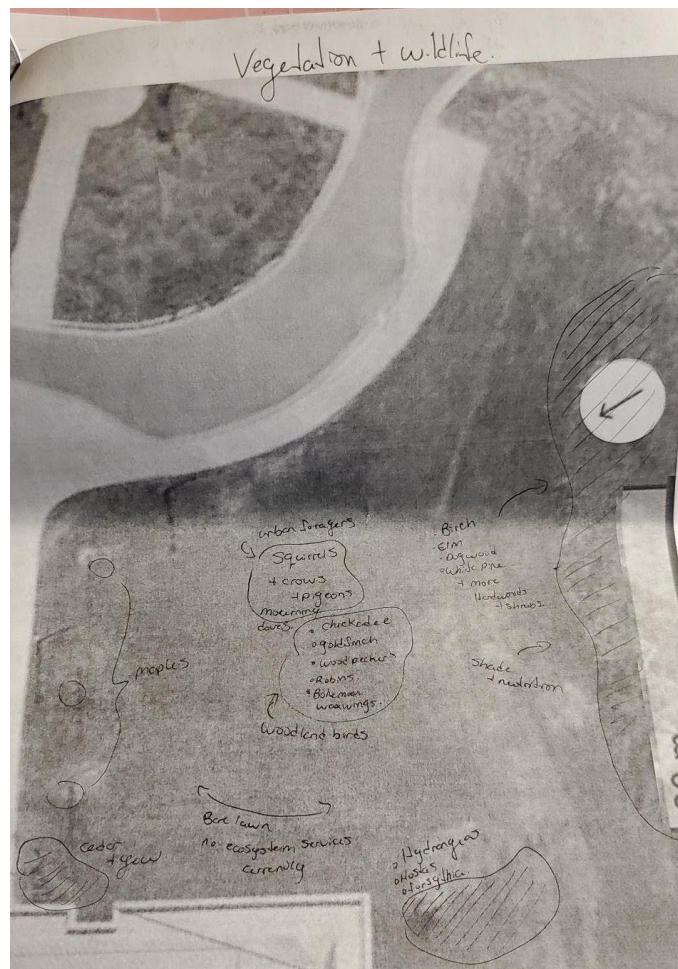 Vegetation + wildlife.
urban foragers
Squirrels
+ crows
+ pigeons
mourning
doves.
• chickadee
• goldfinch
• woodpeckers
• Robins
• Bohemian
waxwings.
woodland birds
• Birch
• Elm
• Dogwood
• White pine
+ more
Hardwoods
+ shrubs.
Shade
+ nutrition
maples
Bare lawn
no ecosystem services
currently
cedar
+ yew
• Hydrangea
• Hostas
• forsythia